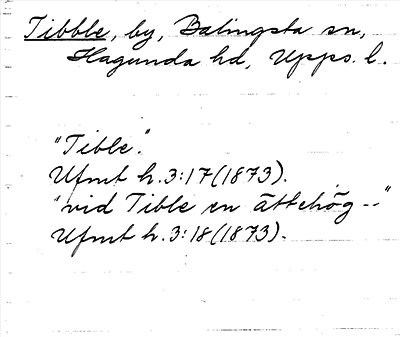 Tibble, by, Balingsta sn,
Hagunda hd, Upps. l.
"Tible."
Ufmt h. 3:17(1873).
"vid Tible en ättehög --"
Ufmt h. 3:18(1873).